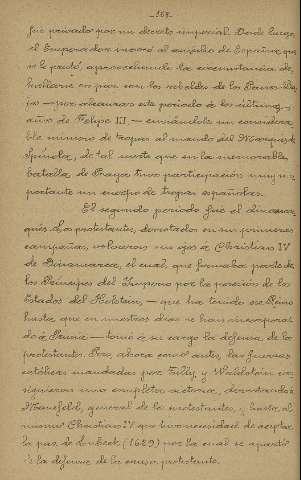 -168-
fué privado por un decreto imperial. Desde luego
el Emperador invocó el auxilio de España que
se le prestó, aprovechando la circunstancia de
hallarse en paz con los rebeldes de los Paises-Ba-
jos — pues alcanzaba este periodo á los últimos
años de Felipe III — enviándole un considera-
ble número de tropas al mando del Marqués de
Spínola, de tal suerte que en la memorable
batalla de Praga tuvo participación muy im-
portante un cuerpo de tropas españolas.
El segundo período fué el dinamar-
qués. Los protestantes, derrotados en sus primeras
campañas, volvieron sus ojos á Christian IV
de Dinamarca, el cual, que formaba parte de
los Príncipes del Imperio por la posesión de los
Estados del Holstein, — que ha tenido ese Reino
hasta que en nuestros dias se han incorpora-
do á Prusia — tomó á su cargo la defensa de los
protestantes. Pero, ahora como antes, las fuerzas
católicas mandadas por Tilly y Waldstein con-
siguieron una completa victoria, derrotando á
Mansfeld, general de los protestantes, y hasta al
mismo Christian IV que tuvo necesidad de aceptar
la paz de Lubeck (1629) por la cual se apartó
de la defensa de la causa protestante.